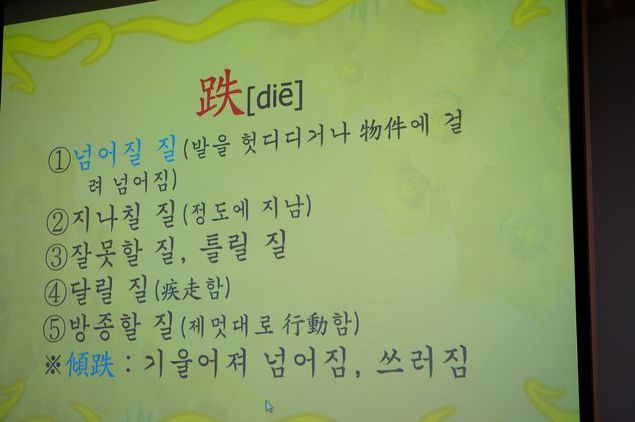 跌[diē]
①넘어질 질(발을 헛디디거나 物件에 걸
려 넘어짐)
②지나칠 질(정도에 지남)
③잘못할 질, 틀릴 질
④달릴 질(疾走함)
⑤방종할 질(제멋대로 行動함)
※傾跌 : 기울어져 넘어짐, 쓰러짐